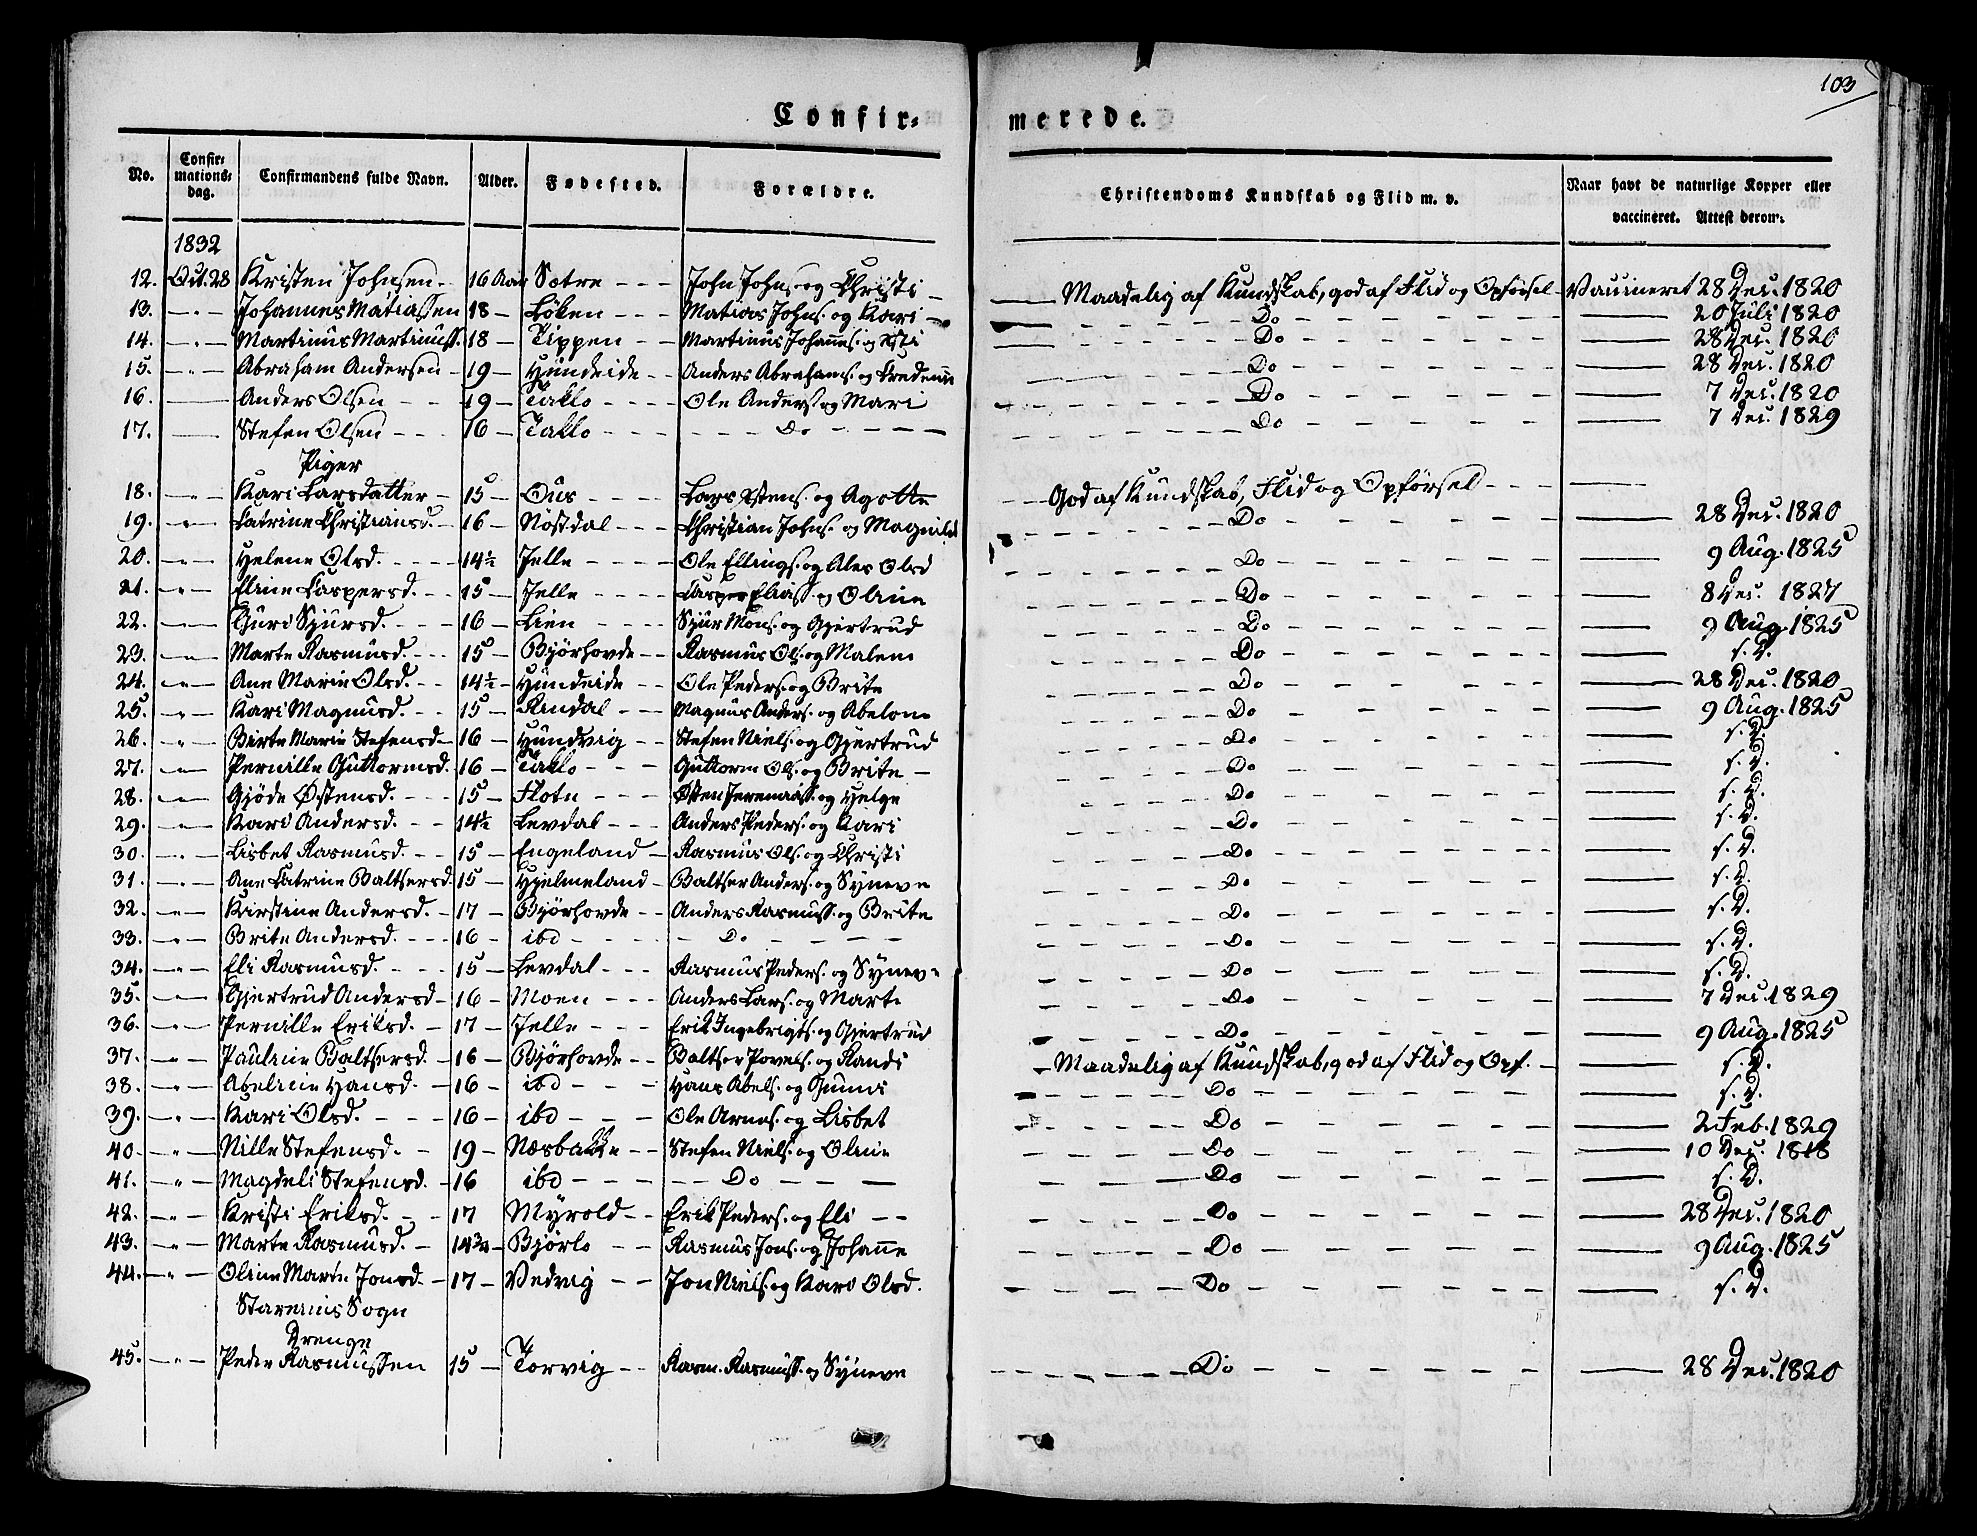 103
Confir=
merede.
No. Confir= mations= dag. Confirmandens fulde Navn. Alder. Fødested. Forældre. Christendoms Kundskab og Flid m. v. Naar havt de naturlige Kopper eller vaccineret. Attest derom.
1832
12. Oct. 28 Kristen Johnsen 16 Aar Sætre John Johns. og Christi Maadelig af Kundskab, god af Flid og Opførsel Vaccineret 28 Dec. 1820
13. Johannes Matiassen 18 Løken Matias Johns. og Kari Do 20 Juli 1820
14. Martinus Martinuss. 18 Tippen Martinus Johannes. og Do 28 Dec. 1820
15. Abraham Andersen 19 Hundeide Anders Abrahams. og Do 28 Dec. 1820
16. Anders Olsen 19 Taklo Ole Anders. og Mari Do 7 Dec. 1820
17. Stefen Olsen 16 Taklo Do Do 7 Dec. 1829
Piger
18. Kari Larsdatter 15 Ous Lars og Agotte God af Kundskab, Flid og Opførsel
19. Catrine Christiansd. 16 Nøstdal Christian Johns. og Magnild Do 28 Dec. 1820
20. Helene Olsd. 14½ Jelle Ole Ellings. og Ales Olsd Do 9 Aug. 1825
21. Eline Caspersd. 15 Jelle Casper Eliass. og Oline Do 8 Dec. 1827
22. Guri Sjursd. 16 Lien Sjur Mons. og Gjertrud Do 9 Aug. 1825
23. Marte Rasmusd. 15 Bjørhovde Rasmus Ols. og Malene Do s. D.
24. Ane Marie Olsd. 14½ Hundeide Ole Peders. og Brite Do 28 Dec. 1820
25. Kari Magnusd. 15 Rendal Magnus Anders. og Abelone Do 9 Aug. 1825
26. Birte Marie Stefensd 16 Hundvig Stefen Niels. og Gjertrud Do s. D.
27. Pernille Guttormsd. 16 Taklo Guttorm Ols. og Brite Do s. D.
28. Gjøde Østensd. 15 Flote Østen Jeremiass. og Helge Do s. D.
29. Kari Andersd. 14½ Levdal Anders Peders. og Kari Do s. D.
30. Lisbet Rasmusd. 15 Engeland Rasmus Ols. og Christi Do s. D.
31. Ane Catrine Baltsersd. 15 Hjelmeland Baltser Anders. og Syneve Do s. D.
32. Kirstine Andersd. 17 Bjørhovde Anders Rasmuss. og Brite Do s. D.
33. Brite Andersd. 16 ibd Do Do s. D.
34. Eli Rasmusd. 15 Levdal Rasmus Peders. og Syneve Do s. D.
35. Gjertrud Andersd 16 Moen Anders Lars. og Marte Do 7 Dec. 1829
36. Pernille Eriksd. 17 Jelle Erik Ingebrigts. og Gjertrud Do 9 Aug. 1825
37. Pauline Baltsersd. 16 Bjørhovde Baltser Povels. og Randi Maadelig af Kundskab, god af Flid og Opf. s. D.
38. Abeline Hansd. 16 ibd Hans Abels. og Gunni Do s. D.
39. Kari Olsd. 16 ibd Ole Arnes. og Lisbet Do 2 Feb. 1829
40 Nille Stefensd. 19 Næsbakke Stefen Niels. og Oline Do 10 Dec. 1818
41. Magdeli Stefensd. 16 ibd Do Do s. D.
42. Kristi Eriksd. 17 Myrold Erik Peders. og Eli Do 28 Dec. 1820
43. Marte Rasmusd. 14¾ Bjørlo Rasmus Jons. og Johanne Do 9 Aug. 1825
44. Oline Marte Jonsd. 17 Vedvig Jon Niels. og Kari Olsd. Do s. D.
Starenius Sogn
Drenge
45. Peder Rasmussen 15 Torvig Rasm. Rasmuss. og Syneve Do 28 Dec. 1820